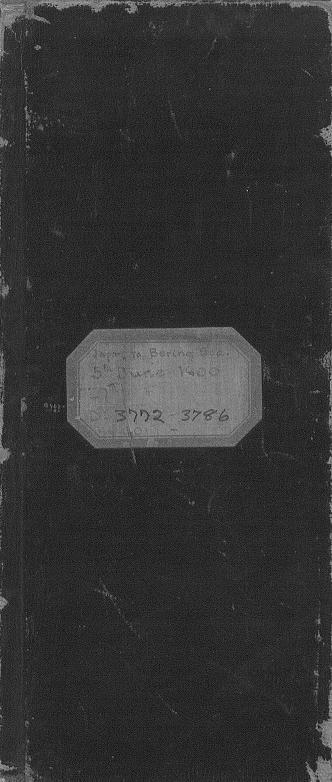 Japan to Bering Sea.
5th June 1900
D. 3772-3786